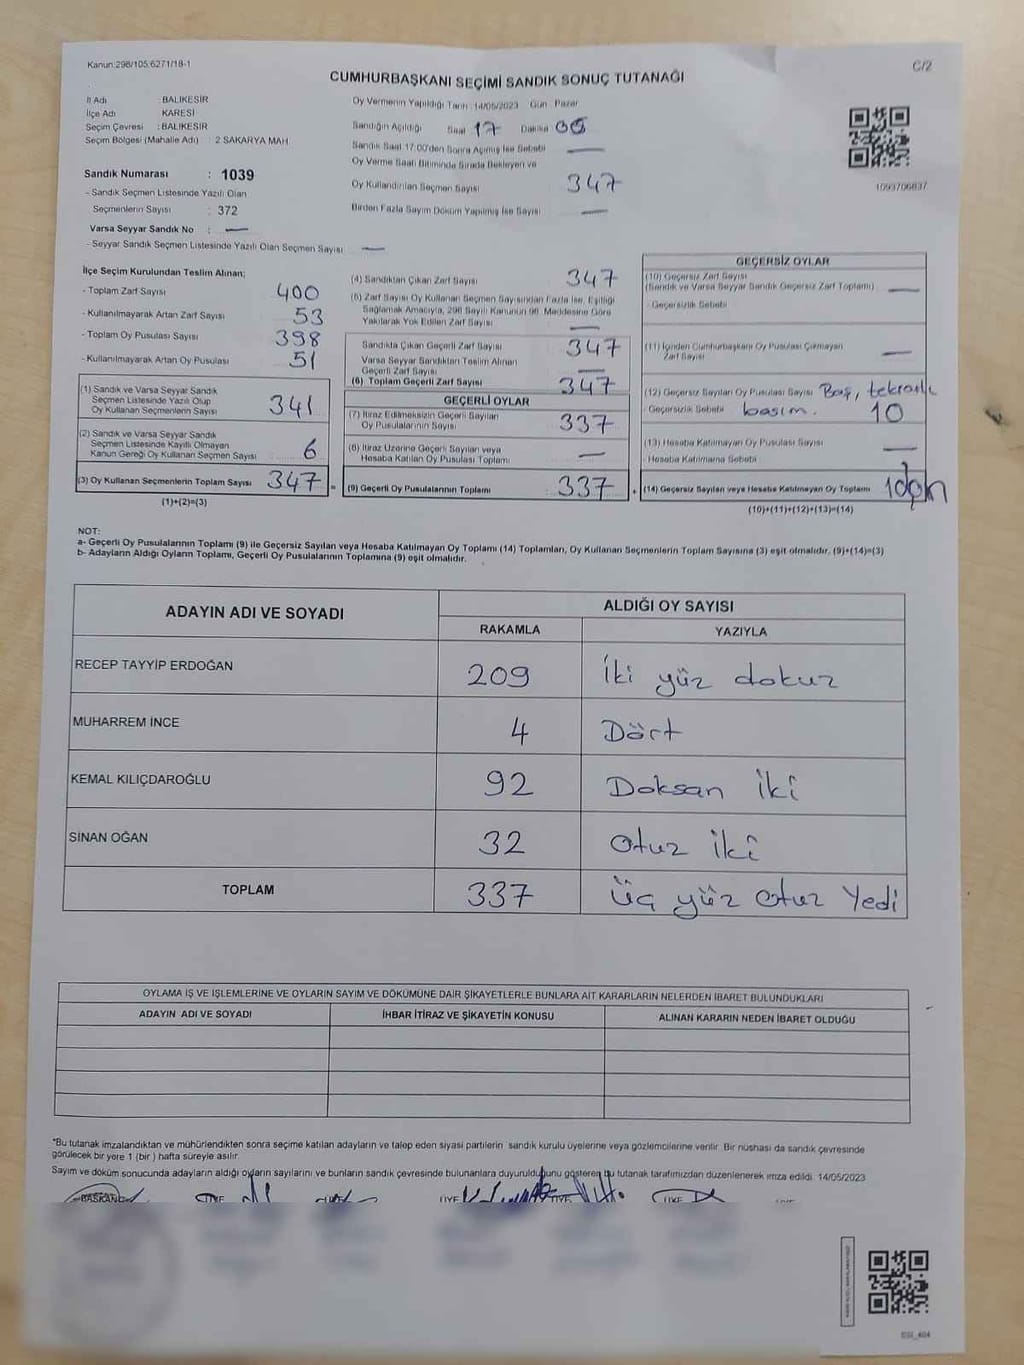 Kanun:298/105,6271/18-1
C/2
CUMHURBAŞKANI SEÇİMİ SANDIK SONUÇ TUTANAĞI
İl Adı : BALIKESİR
İlçe Adı : KARESİ
Seçim Çevresi : BALIKESİR
Seçim Bölgesi (Mahalle Adı) : 2 SAKARYA MAH.
Sandık Numarası : 1039
- Sandık Seçmen Listesinde Yazılı Olan
Seçmenlerin Sayısı : 372
Varsa Seyyar Sandık No : —
- Seyyar Sandık Seçmen Listesinde Yazılı Olan Seçmen Sayısı —
Oy Vermenin Yapıldığı Tarih :14/05/2023 Gün Pazar
Sandığın Açıldığı Saat 17 Dakika 05
Sandık Saat 17:00'den Sonra Açılmış İse Sebebi —
Oy Verme Saati Bitiminde Sırada Bekleyen ve
Oy Kullandırılan Seçmen Sayısı 347
Birden Fazla Sayım Döküm Yapılmış İse Sayısı —
1093706837
İlçe Seçim Kurulundan Teslim Alınan;
- Toplam Zarf Sayısı 400
- Kullanılmayarak Artan Zarf Sayısı 53
- Toplam Oy Pusulası Sayısı 398
- Kullanılmayarak Artan Oy Pusulası 51
(1) Sandık ve Varsa Seyyar Sandık
Seçmen Listesinde Yazılı Olup
Oy Kullanan Seçmenlerin Sayısı 341
(2) Sandık ve Varsa Seyyar Sandık
Seçmen Listesinde Kayıtlı Olmayan
Kanun Gereği Oy Kullanan Seçmen Sayısı 6
(3) Oy Kullanan Seçmenlerin Toplam Sayısı 347 =
(1)+(2)=(3)
(4) Sandıktan Çıkan Zarf Sayısı 347
(5) Zarf Sayısı Oy Kullanan Seçmen Sayısından Fazla İse, Eşitliği
Sağlamak Amacıyla, 298 Sayılı Kanunun 98. Maddesine Göre
Yakılarak Yok Edilen Zarf Sayısı —
Sandıkta Çıkan Geçerli Zarf Sayısı 347
Varsa Seyyar Sandıktan Teslim Alınan
Geçerli Zarf Sayısı —
(6) Toplam Geçerli Zarf Sayısı 347
GEÇERLİ OYLAR
(7) İtiraz Edilmeksizin Geçerli Sayılan
Oy Pusulalarının Sayısı 337
(8) İtiraz Üzerine Geçerli Sayılan veya
Hesaba Katılan Oy Pusulası Toplamı —
(9) Geçerli Oy Pusulalarının Toplamı : 337 +
GEÇERSİZ OYLAR
(10) Geçersiz Zarf Sayısı
(Sandık ve Varsa Seyyar Sandık Geçersiz Zarf Toplamı) —
- Geçersizlik Sebebi
(11) İçinden Cumhurbaşkanı Oy Pusulası Çıkmayan
Zarf Sayısı —
(12) Geçersiz Sayılan Oy Pusulası Sayısı Boş, tekrarlı
- Geçersizlik Sebebi basım. 10
(13) Hesaba Katılmayan Oy Pusulası Sayısı —
- Hesaba Katılmama Sebebi
(14) Geçersiz Sayılan veya Hesaba Katılmayan Oy Toplamı 10
(10)+(11)+(12)+(13)=(14)
NOT:
a- Geçerli Oy Pusulalarının Toplamı (9) ile Geçersiz Sayılan veya Hesaba Katılmayan Oy Toplamı (14) Toplamları, Oy Kullanan Seçmenlerin Toplam Sayısına (3) eşit olmalıdır. (9)+(14)=(3)
b- Adayların Aldığı Oyların Toplamı, Geçerli Oy Pusulalarının Toplamına (9) eşit olmalıdır.
ADAYIN ADI VE SOYADI ALDIĞI OY SAYISI
RAKAMLA YAZIYLA
RECEP TAYYİP ERDOĞAN 209 İki yüz dokuz
MUHARREM İNCE 4 Dört
KEMAL KILIÇDAROĞLU 92 Doksan iki
SİNAN OĞAN 32 Otuz iki
TOPLAM 337 Üç yüz otuz Yedi
OYLAMA İŞ VE İŞLEMLERİNE VE OYLARIN SAYIM VE DÖKÜMÜNE DAİR ŞİKAYETLERLE BUNLARA AİT KARARLARIN NELERDEN İBARET BULUNDUKLARI
ADAYIN ADI VE SOYADI İHBAR İTİRAZ VE ŞİKAYETİN KONUSU ALINAN KARARIN NEDEN İBARET OLDUĞU
*Bu tutanak imzalandıktan ve mühürlendikten sonra seçime katılan adayların ve talep eden siyasi partilerin sandık kurulu üyelerine veya gözlemcilerine verilir. Bir nüshası da sandık çevresinde
görülecek bir yere 1 (bir) hafta süreyle asılır.
Sayım ve döküm sonucunda adayların aldığı oyların sayılarını ve bunların sandık çevresinde bulunanlara duyurulduğunu gösteren bu tutanak tarafımızdan düzenlenerek imza edildi. 14/05/2023
BAŞKAN ÜYE ÜYE ÜYE ÜYE